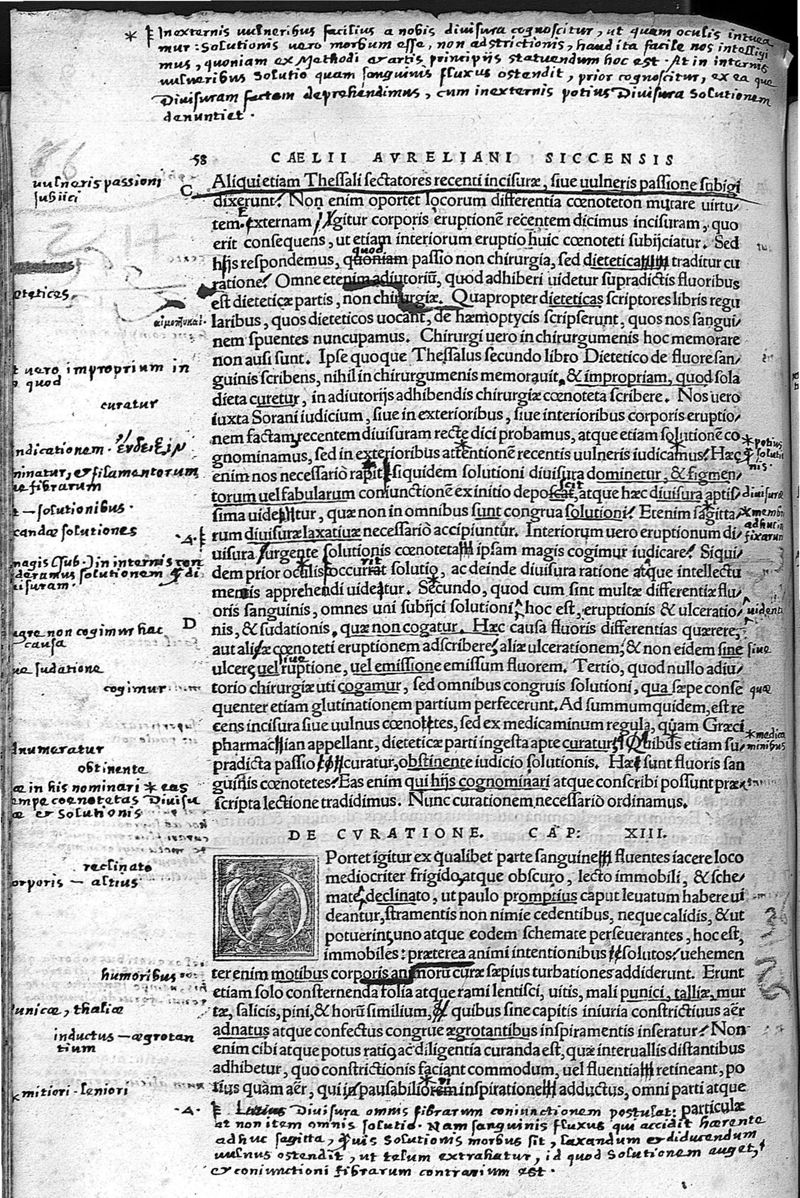 * Inexternis vulneribus facilius a nobis divisura cognoscitur, ut quam oculis intuea
mur: Solutionis vero morbum esse, non adstrictionis, haud ita facile nos intelligi
mus, quoniam ex Methodi artis principijs statuendum hoc est. At in internis
vulneribus Solutio quam sanguinis fluxus ostendit, prior cognoscitur, ex ea que
Divisuram factam deprehendimus, cum inexternis potius Divisura Solutionem
denuntiet.
58 CAELII AVRELIANI SICCENSIS
vulneris passioni
subijci
C Aliqui etiam Thessali sectatores recenti incisuræ, siue uulneris passione subigi
dixerunt. Non enim oportet locorum differentia cœnoteton mutare uirtu
tem. externam igitur corporis eruptionē recentem dicimus incisuram, quo
erit consequens, ut etiam interiorum eruptio huic cœnoteti subijciatur. Sed
quod
hijs respondemus, quoniam passio non chirurgia, sed dietetica traditur cu
ratione. Omne etenim adiutoriū, quod adhiberi uidetur supradictis fluoribus
est dieteticæ partis, non chirurgiæ. Quapropter dieteticas scriptores libris regu
laribus, quos dieteticos uocant, de hæmoptycis scripserunt, quos nos sangui
nem spuentes nuncupamus. Chirurgi uero in chirurgumenis hoc memorare
non ausi sunt. Ipse quoque Thessalus secundo libro Dietetico de fluore san
vero improprium in
quod
guinis scribens, nihil in chirurgumenis memorauit, & impropriam, quod sola
curatur
dieta curetur, in adiutorijs adhibendis chirurgiæ cœnoteta scribere. Nos uero
iuxta Sorani iudicium, siue in exterioribus, siue interioribus corporis eruptio
nem factam recentem diuisuram recte dici probamus, atque etiam solutionē co
ndicationem. ἔνδειξιν
gnominamus, sed in exterioribus attentionem recentis uulneris iudicamus. Hæc
potius
solutio
nis
minatur, et filamentorum
ue fibrarum
enim nos necessariò rapit siquidem solutioni diuisura dominetur, & figmen
torum uel fabularum coniunctionē ex initio deposcat, atque hæc diuisura aptis
divisuræ
solutionibus.
sima uidetur, quæ non in omnibus sunt congrua solutioni. Etenim sagitta
candæ solutiones
rum diuisuræ laxatiuæ necessariò accipiuntur. Interiorum uero eruptionum di
adhuc in
fixarum
magis (sub.) in internis con
sideramus solutionem
uisuram.
uisura urgente solutionis cœnoteta ipsam magis cogimur iudicare. Siqui
dem prior oculis occurrat solutio, ac deinde diuisura ratione atque intellectu
mentis apprehendi uideatur. Secundo, quod cum sint multæ differentiæ flu
oris sanguinis, omnes uni subijci solutioni, hoc est, eruptionis & ulceratio
D
ægre non cogimur hac
causa
nis, & sudationis, quæ non cogatur. Hæc causa fluoris differentias quærere,
aut aliæ cœnoteti eruptionem adscribere, aliæ ulcerationem, & non eidem sine
siue
ue sudatione
siue
ulcere uel ruptione, uel emissione emissum fluorem. Tertio, quod nullo adiu
cogimur
torio chirurgiæ uti cogamur, sed omnibus congruis solutioni, qua sæpe conse
quæ
quenter etiam glutinationem partium perfecerunt. Ad summum quidem, est re
cens incisura siue uulnus cœnotetes, sed ex medicaminum regula, quam Græci
* medica
minibus
pharmacian appellant, dieteticæ parti ingesta apte curatur. Quibus etiam su
pradicta passio curatur, obstinente iudicio solutionis. Hæ sunt fluoris san
obtinente
guinis cœnotetes. Eas enim qui hijs cognominari atque conscribi possunt præ
æ in his nominari * eas
coenotetas Divisu
æ et Solutionis
scripta lectione tradidimus. Nunc curationem necessariò ordinamus.
DE CVRATIONE. CAP: XIII.
reclinato
corporis — altius
OPortet igitur ex qualibet parte sanguine fluentes iacere loco
mediocriter frigido, atque obscuro, lecto immobili, & sche
mate declinato, ut paulo promptius caput leuatum habere ui
deantur, stramentis non nimie cedentibus, neque calidis, & ut
potuerint, uno atque eodem schemate perseuerantes, hoc est,
immobiles: præterea animi intentionibus solutos: uehemen
humoribus
ter enim motibus corporis animorū curæ sæpius turbationes addiderunt. Erunt
etiam solo consternenda folia atque rami lentisci, uitis, mali punici, talliæ, mur
unicæ, thaliæ
tæ, salicis, pini, & horū similium, quibus sine capitis iniuria constrictiuus aër
inductus — ægrotan
tium
adnatus atque confectus congrue ægrotantibus inspiramentis inseratur. Non
enim cibi atque potus ratio ac diligentia curanda est, quæ interuallis distantibus
adhibetur, quo constrictionis faciant commodum, uel fluentia retineant, po
mitiori — leniori
tius quàm aër, qui inpausabiliorem inspiratione adductus, omni parti atque
particulæ
Divisura omnis fibrarum coniunctionem postulat:
at non item omnis solutio. Nam sanguinis fluxus qui accidit hærente
adhuc sagitta, quis Solutionis morbus sit, laxandum et diducendum
vulnus ostendit, ut telum extrahatur, id quod Solutionem auget,
et coniunctioni fibrarum contrarium est.